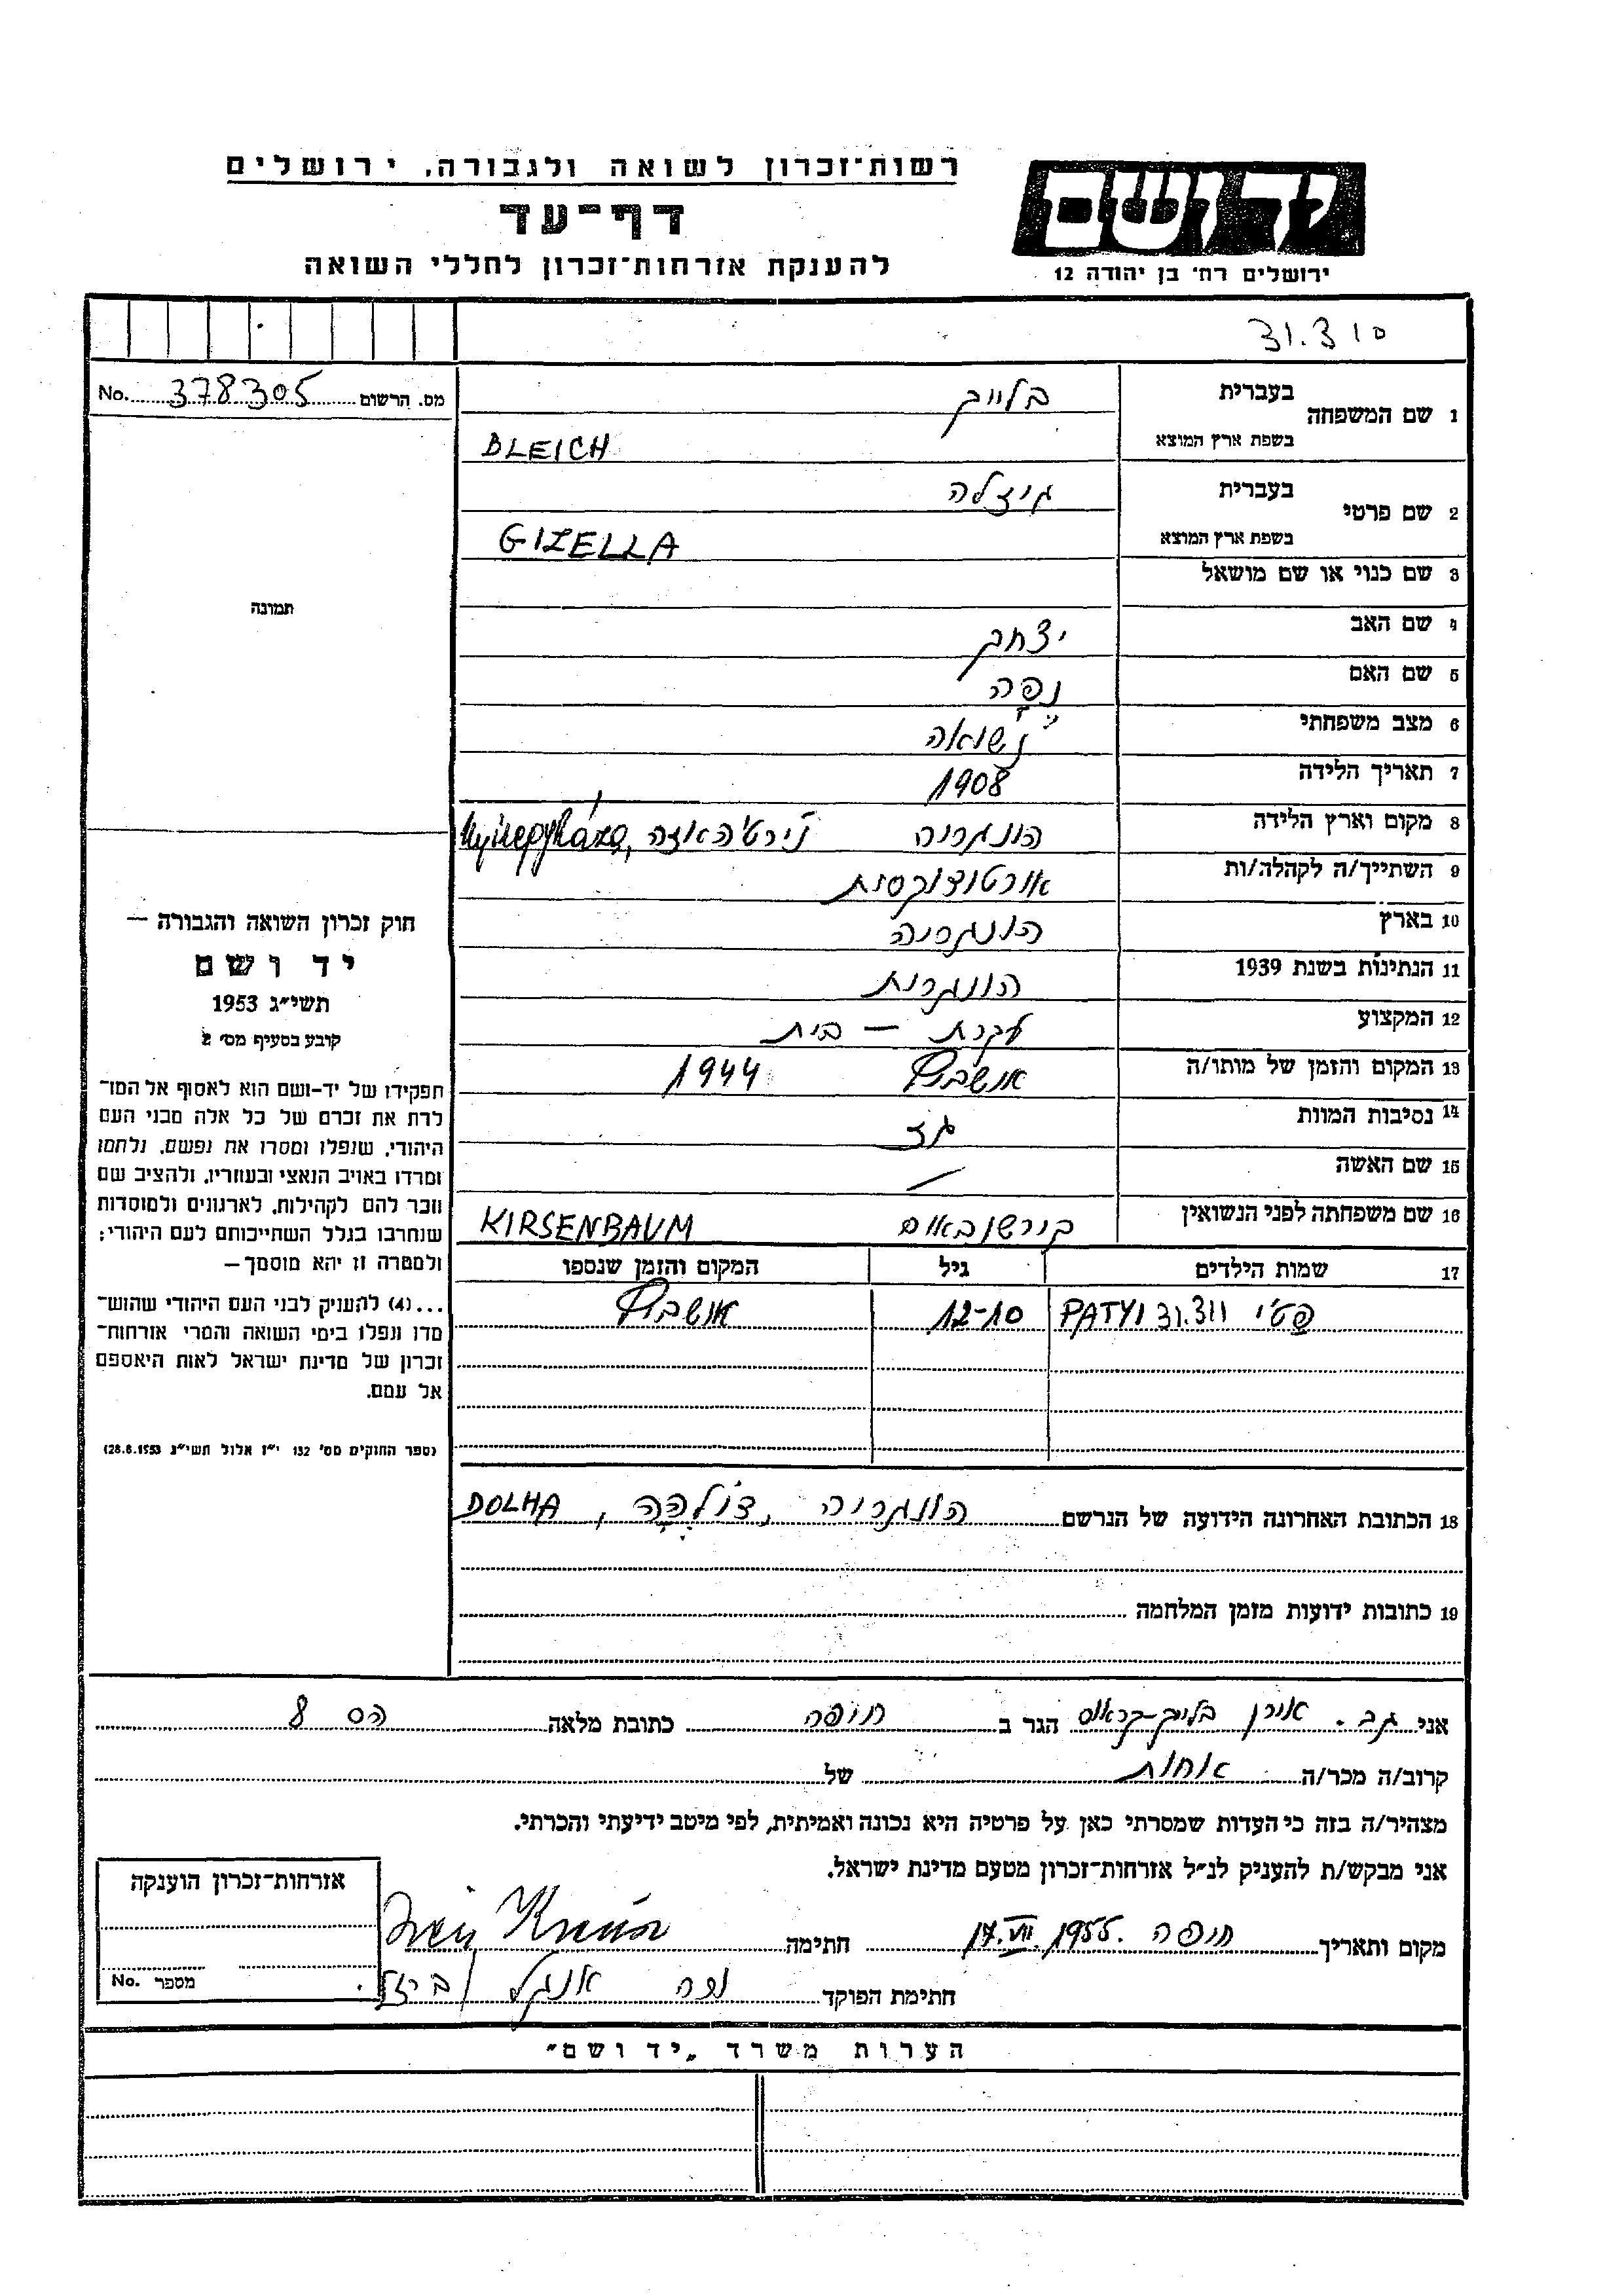 רשות־זכרון לשואה ולגבורה, ירושלים
דף־עד
להענקת אזרחות־זכרון לחללי השואה
יד ושם
ירושלים רח׳ בן יהודה 12
31.310
מס. הרשום 378305 No.
1 שם המשפחה בעברית בלייך
בשפת ארץ המוצא BLEICH
2 שם פרטי בעברית גיזלה
בשפת ארץ המוצא GIZELLA
3 שם כנוי או שם מושאל
4 שם האב יצחק
5 שם האם
6 מצב משפחתי נשואה
7 תאריך הלידה 1908
8 מקום וארץ הלידה הונגריה נירטיהאזה, Nyiregyháza
9 השתייך/ה לקהלה/ות אורטודוקסית
10 בארץ הונגריה
11 הנתינות בשנת 1939 הונגרית
12 המקצוע עקרת – בית
13 המקום והזמן של מותו/ה אושביץ 1944
14 נסיבות המוות גז
15 שם האשה /
16 שם משפחתה לפני הנשואין קירשנבאום KIRSENBAUM
17 שמות הילדים גיל המקום והזמן שנספו
פטי PATYI 31.311 12-10 אושביץ
18 הכתובת האחרונה הידועה של הנרשם הונגריה, דולהה, DOLHA
19 כתובות ידועות מזמן המלחמה
תמונה
חוק זכרון השואה והגבורה –
יד ושם
תשי״ג 1953
קובע בסעיף מס׳ 2
תפקידו של יד-ושם הוא לאסוף אל המו־
לדת את זכרם של כל אלה מבני העם
היהודי, שנפלו ומסרו את נפשם, נלחמו
ומרדו באויב הנאצי ובעוזריו, ולהציב שם
וזכר להם לקהילות, לארגונים ולמוסדות
שנחרבו בגלל השתייכותם לעם היהודי;
ולמטרה זו יהא מוסמך –
...(4) להעניק לבני העם היהודי שהוש־
מדו ונפלו בימי השואה והמרי אזרחות־
זכרון של מדינת ישראל לאות היאספם
אל עמם.
(ספר החוקים מס׳ 132 י״ז אלול תשי״ג 28.8.1953)
אני גב. אירן בלייך-קראוס הגר ב חיפה כתובת מלאה הס 8
קרוב/ה מכר/ה אחות של
מצהיר/ה בזה כי העדות שמסרתי כאן על פרטיה היא נכונה ואמיתית, לפי מיטב ידיעתי והכרתי.
אני מבקש/ת להעניק לנ״ל אזרחות־זכרון מטעם מדינת ישראל.
מקום ותאריך חיפה 17.VII.1955. חתימה Irén Kraus
חתימת הפוקד אנגל
אזרחות־זכרון הוענקה
מספר No.
הערות משרד „יד ושם״